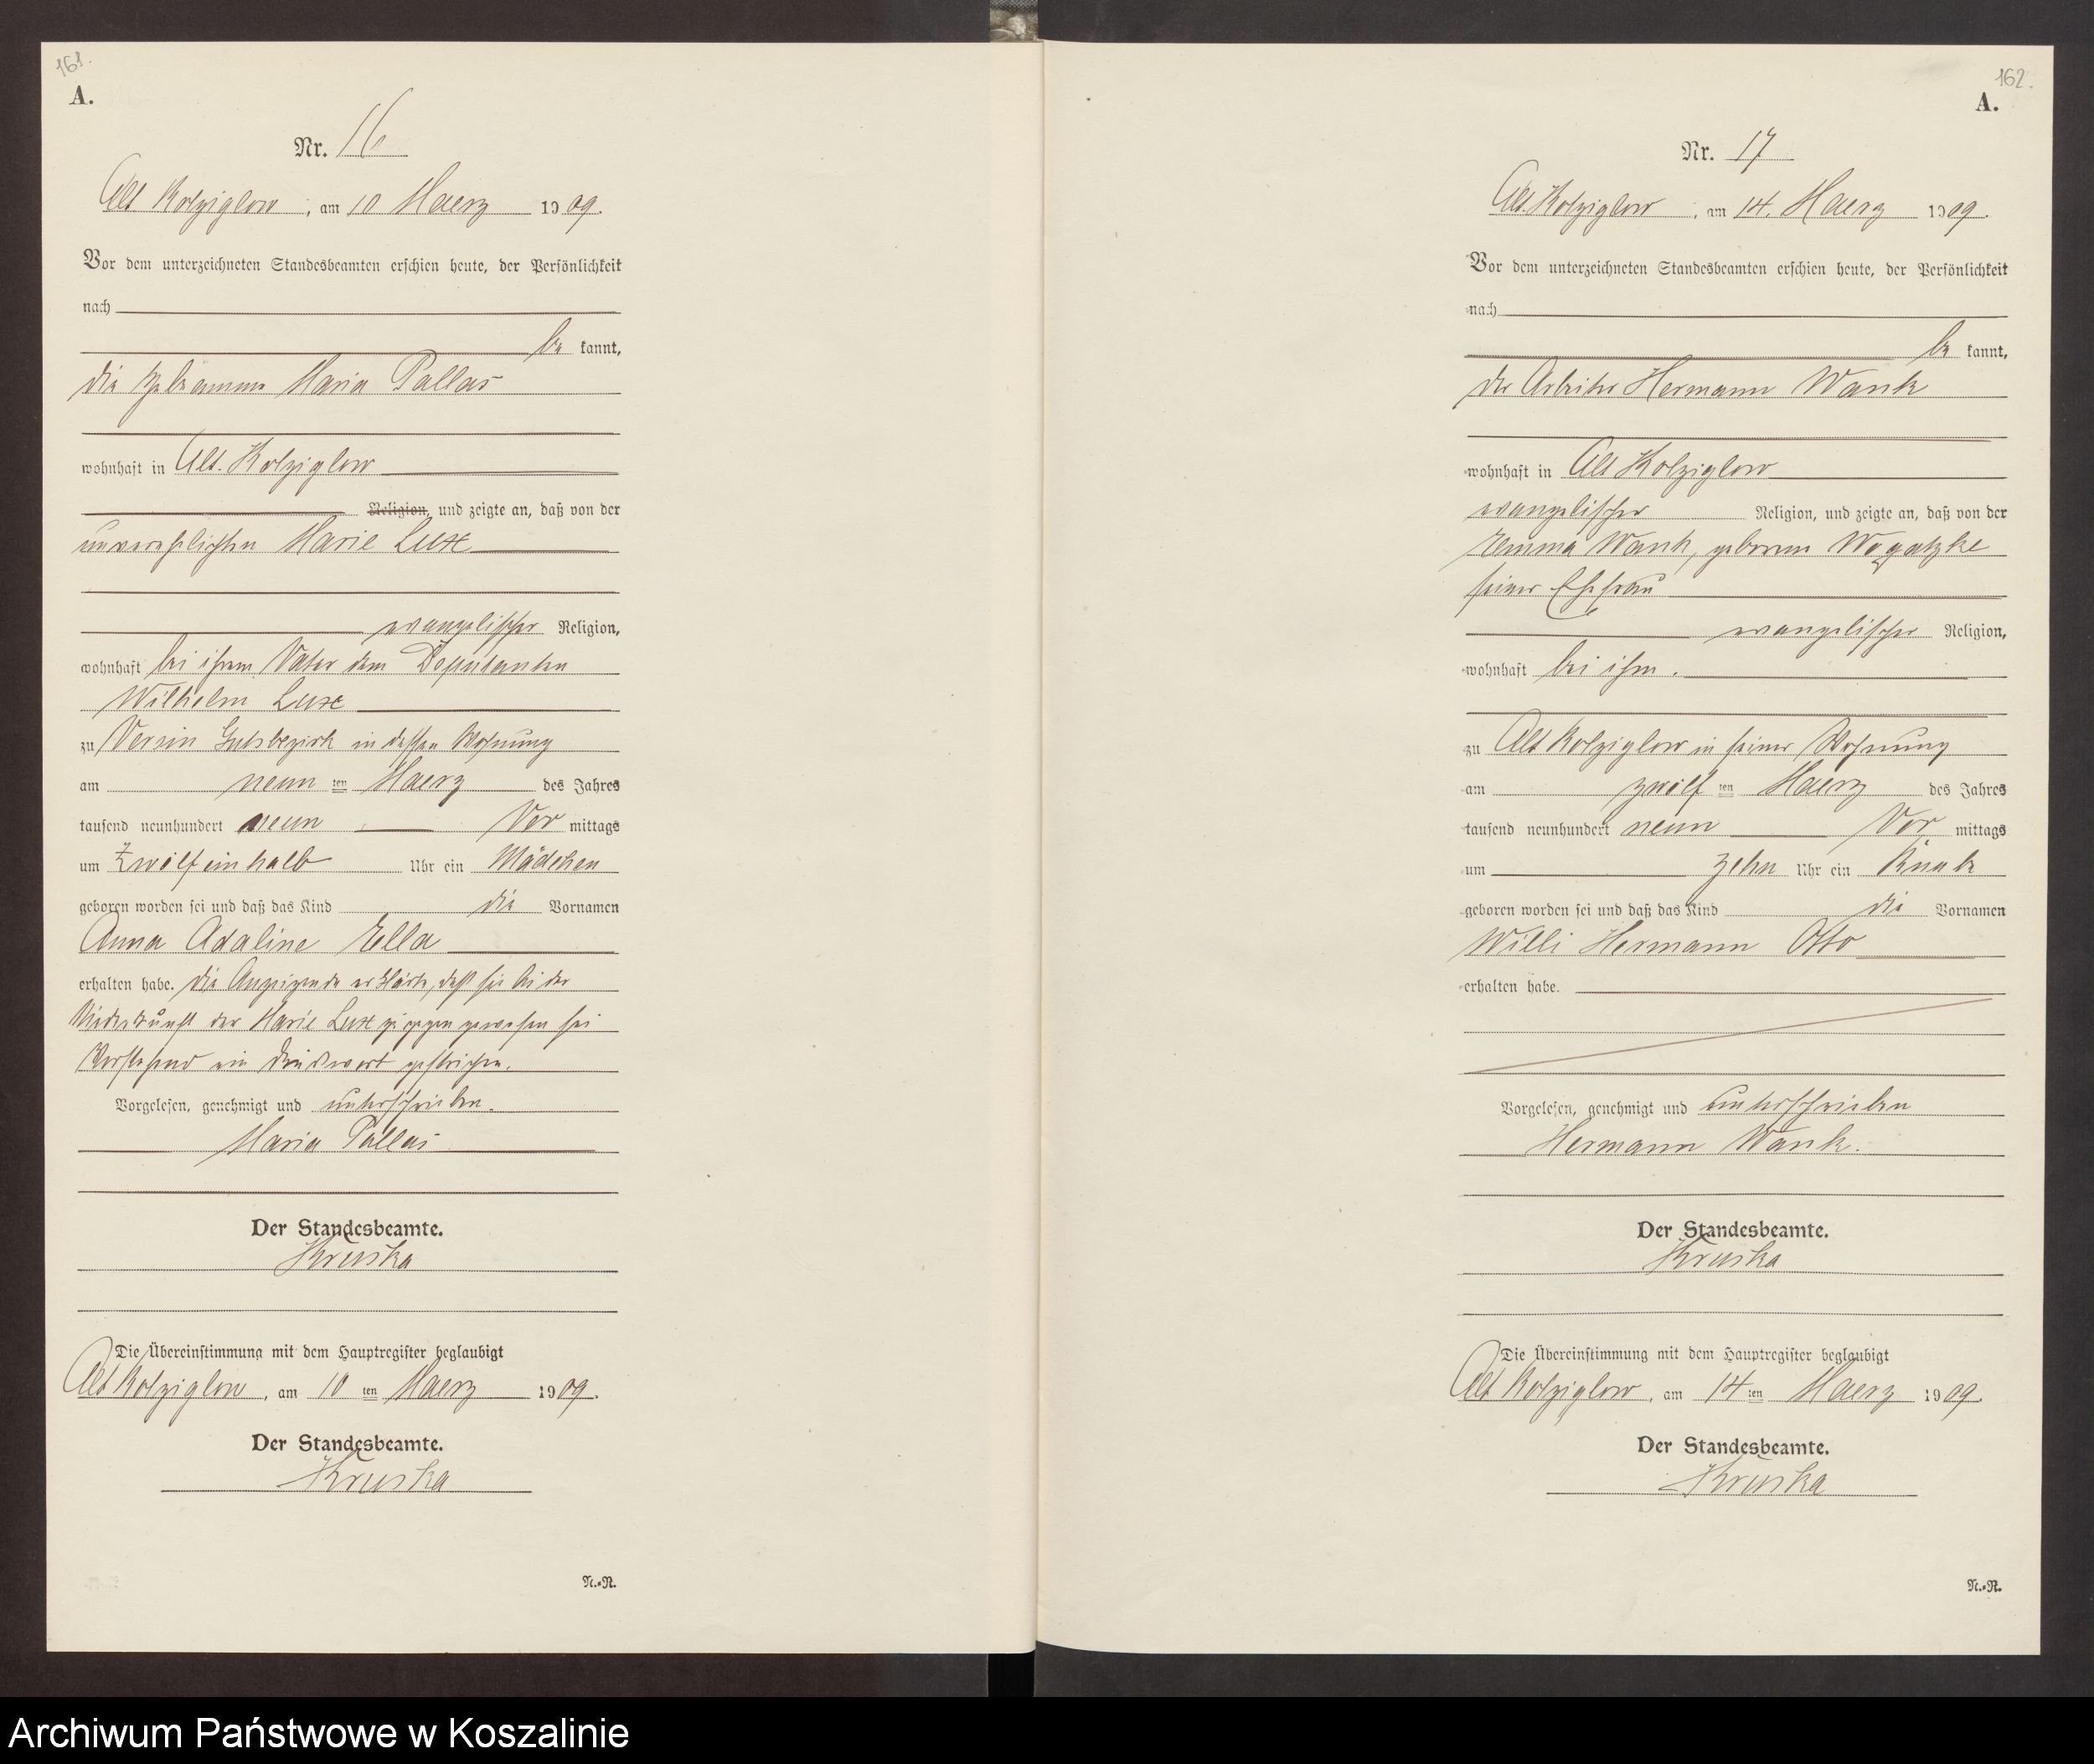 161.
A.
Nr. 16
Alt Kolziglow, am 10 Maerz 1909.
Vor dem unterzeichneten Standesbeamten erschien heute, der Persönlichkeit
nach
be kannt,
die Hebamme Maria Pallas
wohnhaft in Alt. Kolziglow
Religion, und zeigte an, daß von der
unverehelichten Marie Lux
evangelischer Religion,
wohnhaft bei ihrem Vater dem Deputanten
Wilhelm Lux
zu Versin Gutsbezirk in dessen Wohnung
am neun ten Maerz des Jahres
tausend neunhundert neun Vor mittags
um Zwölf einhalb Uhr ein Mädchen
geboren worden sei und daß das Kind die Vornamen
Anna Adaline Ella
erhalten habe. Die Anzeigende erklärte, daß sie bei der
Niederkunft der Marie Lux zugegen gewesen sei
Vorstehend ein Druckwort gestrichen.
Vorgelesen, genehmigt und unterschrieben.
Maria Pallas
Der Standesbeamte.
Kruska
Die Übereinstimmung mit dem Hauptregister beglaubigt
Alt Kolziglow, am 10 ten Maerz 1909.
Der Standesbeamte.
Kruska
N.=R.
162.
A.
Nr. 17
Alt. Kolziglow, am 14. Maerz 1909.
Vor dem unterzeichneten Standesbeamten erschien heute, der Persönlichkeit
nach
be kannt,
der Arbeiter Hermann Wank
wohnhaft in Alt Kolziglow
evangelischer Religion, und zeigte an, daß von der
Emma Wank, geborene Wogatzke
seiner Ehefrau
evangelischer Religion,
wohnhaft bei ihm.
zu Alt Kolziglow in seiner Wohnung
am zwölf ten Maerz des Jahres
tausend neunhundert neun Vor mittags
um zehn Uhr ein Knabe
geboren worden sei und daß das Kind die Vornamen
Willi Hermann Otto
erhalten habe.
Vorgelesen, genehmigt und unterschrieben
Hermann Wank.
Der Standesbeamte.
Kruska
Die Übereinstimmung mit dem Hauptregister beglaubigt
Alt Kolziglow, am 14 ten Maerz 1909.
Der Standesbeamte.
Kruska
N.=R.
Archiwum Państwowe w Koszalinie